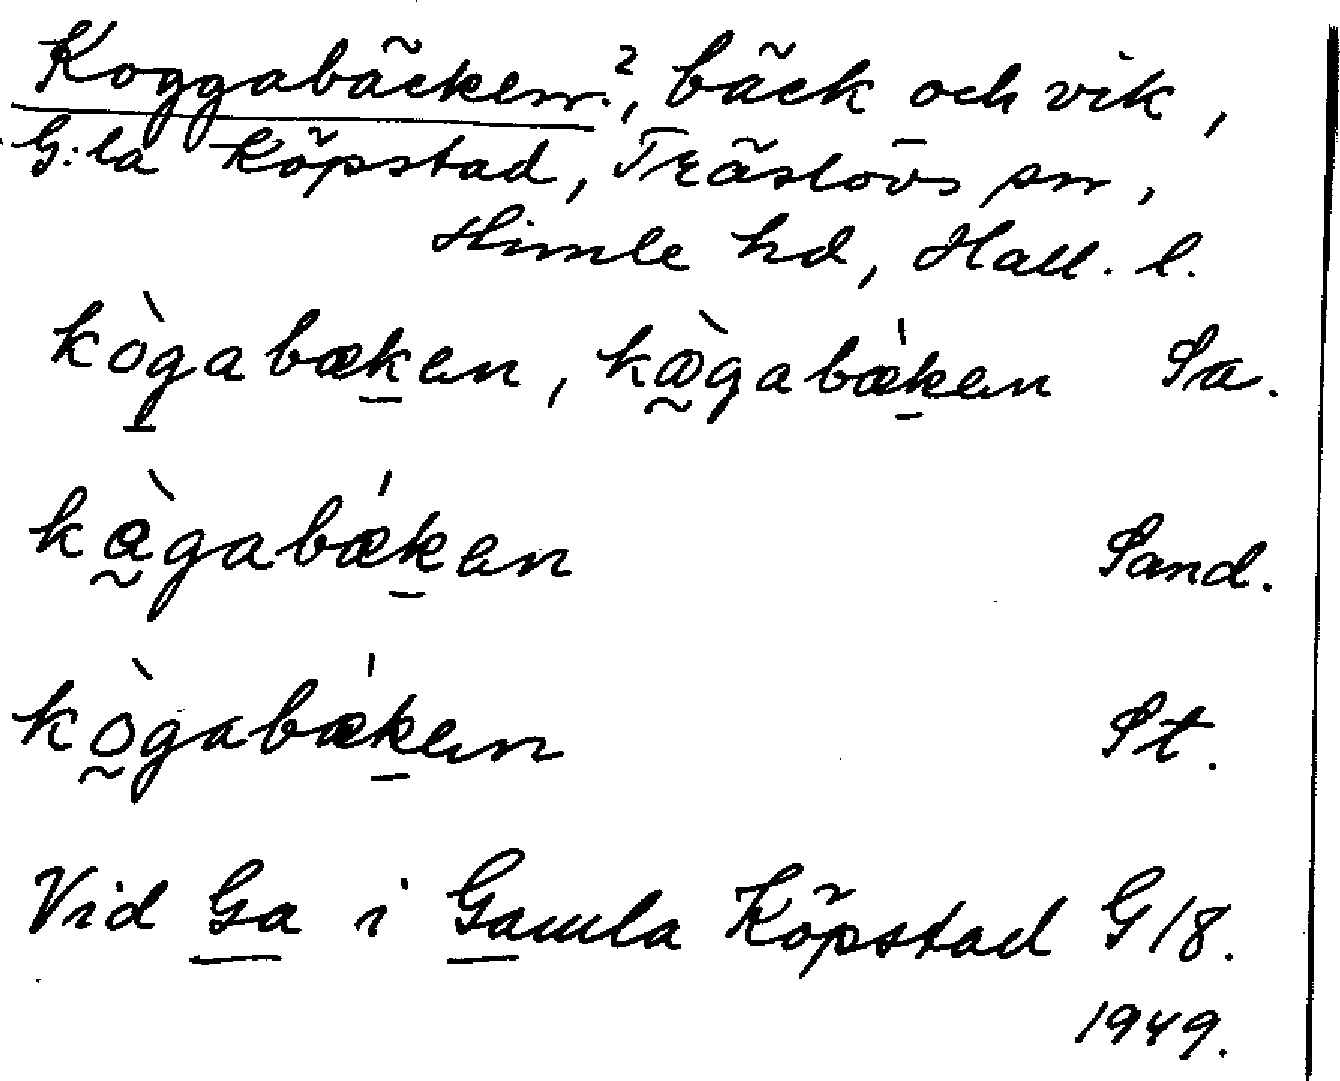 Koggabäcken?, bäck och vik,
G:la Köpstad, Träslövs sn,
Himle hd, Hall. l.
kògabæken, kæ̀gabæ'ken Sa.
kàgabæ'ken Sand.
kògabæ'ken St.
Vid Ga i Gamla Köpstad G 18.
1949.